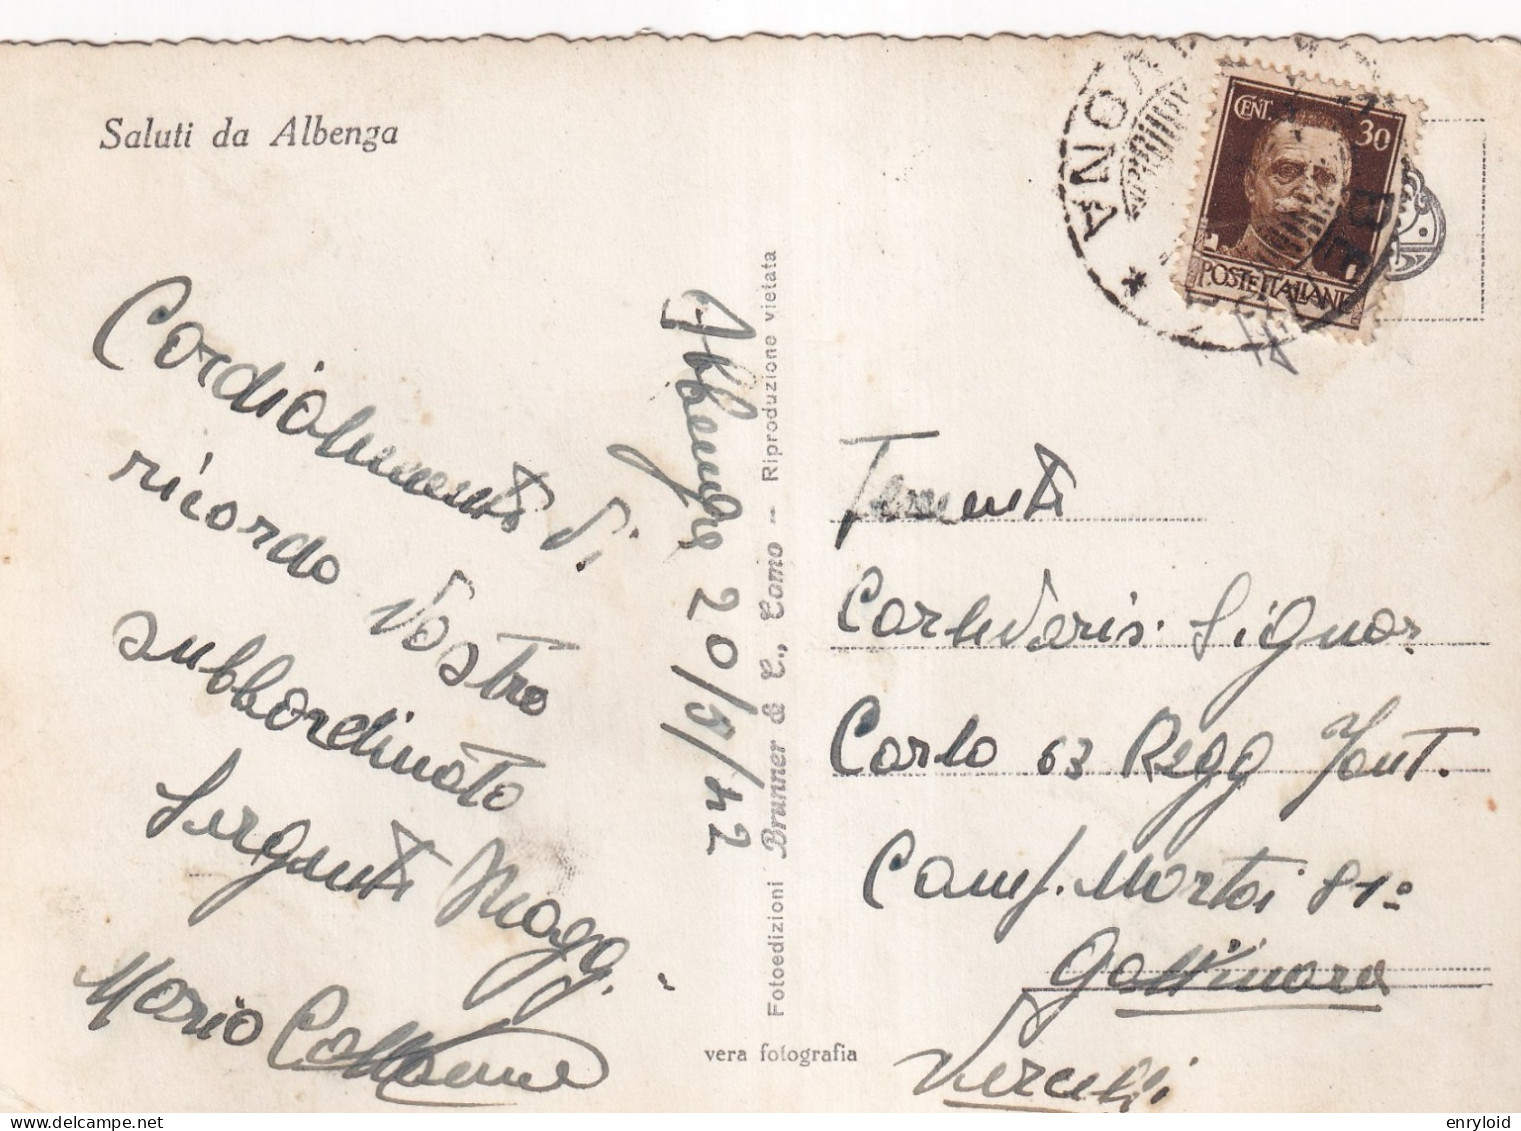 Saluti da Albenga
Cordialmente di
ricordo Vostro
subbordinato
Sergente Magg.
Mario
Albenga 20/5/42
Fotoedizioni Brunner & C., Como – Riproduzione vietata
vera fotografia
CENT. 30
POSTE ITALIANE
Tenente
Carlevaris Signor
Carlo 63 Regg Fant.
Comp. Mortai 81º
Gattinara
Vercelli
enryloid